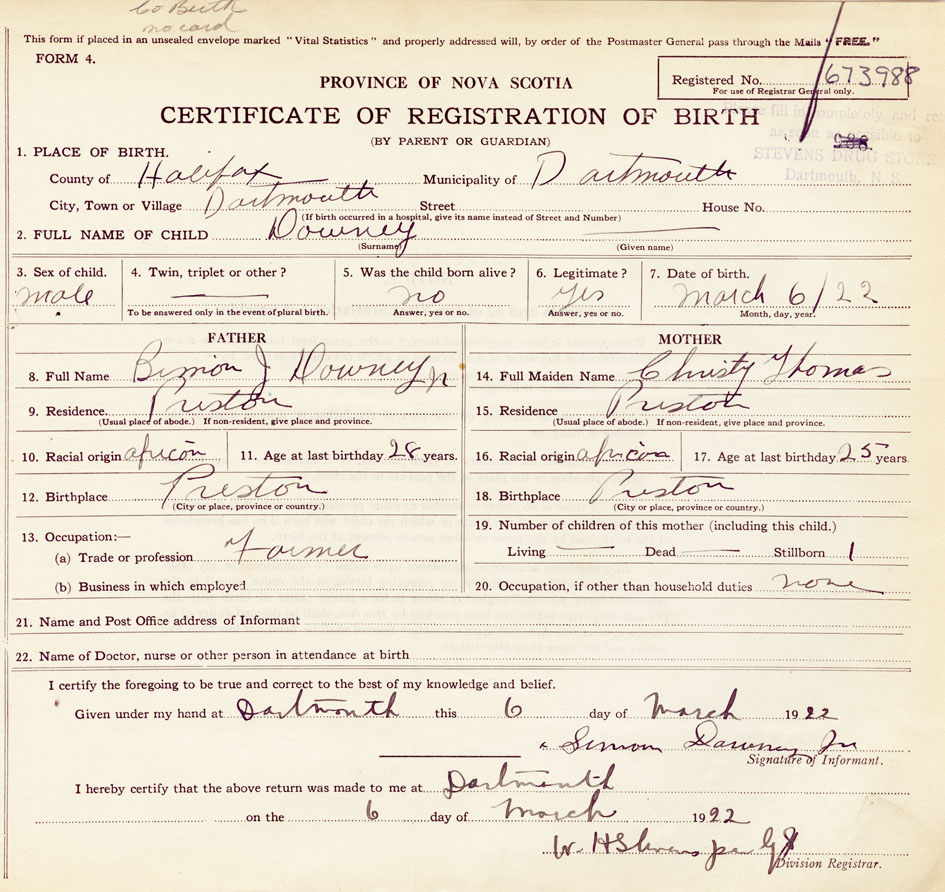 Co Birth
no card
This form if placed in an unsealed envelope marked "Vital Statistics" and properly addressed will, by order of the Postmaster General pass through the Mails "FREE."
FORM 4.
PROVINCE OF NOVA SCOTIA
Registered No. 673988
For use of Registrar General only.
CERTIFICATE OF REGISTRATION OF BIRTH
(BY PARENT OR GUARDIAN)
Please fill in completely and
as soon as possible to
STEVENS DRUG STORE
Dartmouth, N. S.
1. PLACE OF BIRTH.
County of Halifax Municipality of Dartmouth
City, Town or Village Dartmouth Street House No.
(If birth occurred in a hospital, give its name instead of Street and Number)
2. FULL NAME OF CHILD Downey
(Surname) (Given name)
3. Sex of child. 4. Twin, triplet or other? 5. Was the child born alive? 6. Legitimate? 7. Date of birth.
male no yes March 6/22
To be answered only in the event of plural birth. Answer, yes or no. Answer, yes or no. Month, day, year.
FATHER MOTHER
8. Full Name J Downey Jr 14. Full Maiden Name Christy Thomas
9. Residence. Preston 15. Residence Preston
(Usual place of abode.) If non-resident, give place and province. (Usual place of abode.) If non-resident, give place and province.
10. Racial origin african 11. Age at last birthday 28 years. 16. Racial origin african 17. Age at last birthday 25 years.
12. Birthplace Preston 18. Birthplace Preston
(City or place, province or country.) (City or place, province or country.)
13. Occupation:— 19. Number of children of this mother (including this child.)
(a) Trade or profession Farmer Living Dead Stillborn 1
(b) Business in which employed 20. Occupation, if other than household duties none
21. Name and Post Office address of Informant
22. Name of Doctor, nurse or other person in attendance at birth
I certify the foregoing to be true and correct to the best of my knowledge and belief.
Given under my hand at Dartmouth this 6 day of March 1922
Simon Downey Jr
Signature of Informant.
I hereby certify that the above return was made to me at Dartmouth
on the 6 day of March 1922
W. H Stevens per
Division Registrar.